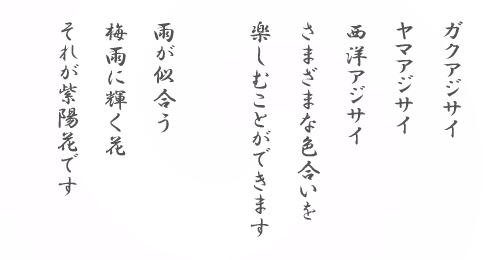 ガクアジサイ
ヤマアジサイ
西洋アジサイ
さまざまな色合いを
楽しむことができます
雨が似合う
梅雨に輝く花
それが紫陽花です